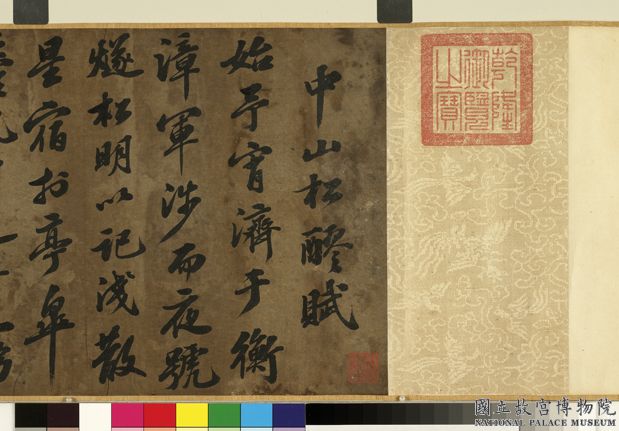 乾隆
御覽
之寶
中山松醪賦
始予宵濟于衡
漳軍涉而夜號
燧松明以記淺散
星宿於亭皋
國立故宮博物院
NATIONAL PALACE MUSEUM